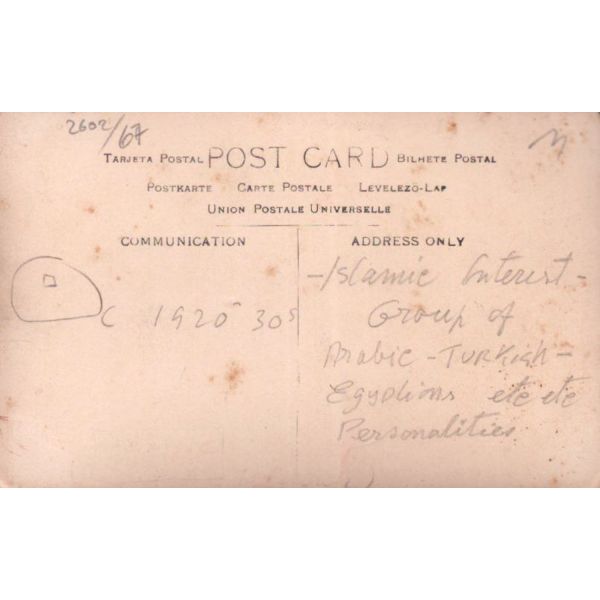 2602/67
TARJETA POSTAL POST CARD BILHETE POSTAL
POSTKARTE CARTE POSTALE LEVELEZŐ-LAP
UNION POSTALE UNIVERSELLE
COMMUNICATION
ADDRESS ONLY
C 1920-30s
-Islamic Interest-
Group of
Arabic-Turkish-
Egyptions etc etc
Personalities